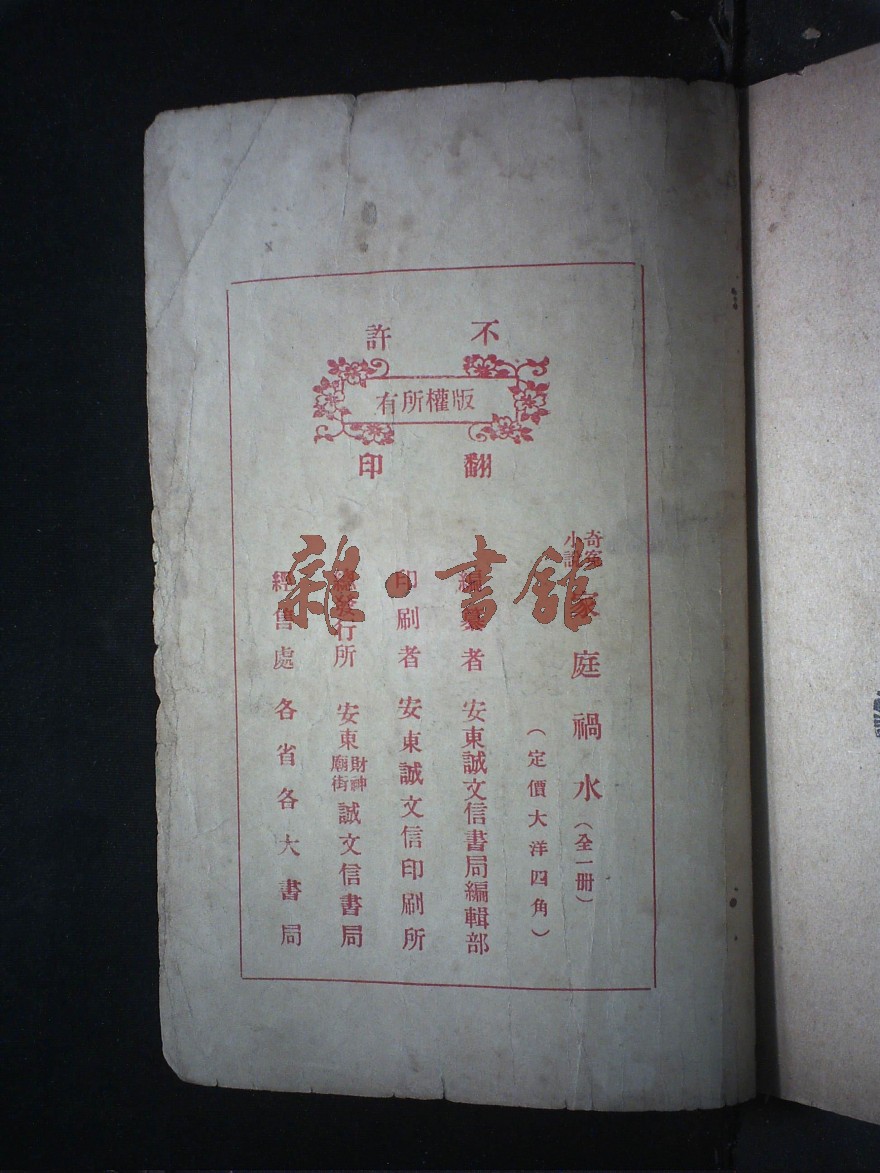 不許
版權所有
翻印
奇寃小說 家庭禍水（全一册）
（定價大洋四角）
編纂者 安東誠文信書局編輯部
印刷者 安東誠文信印刷所
總發行所 安東財神廟街誠文信書局
經售處 各省各大書局
雜·書館